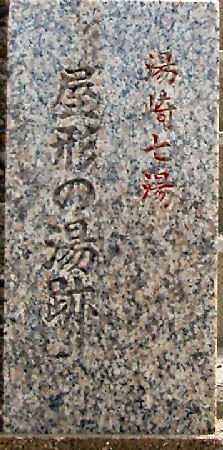 湯崎七湯
屋形の湯跡